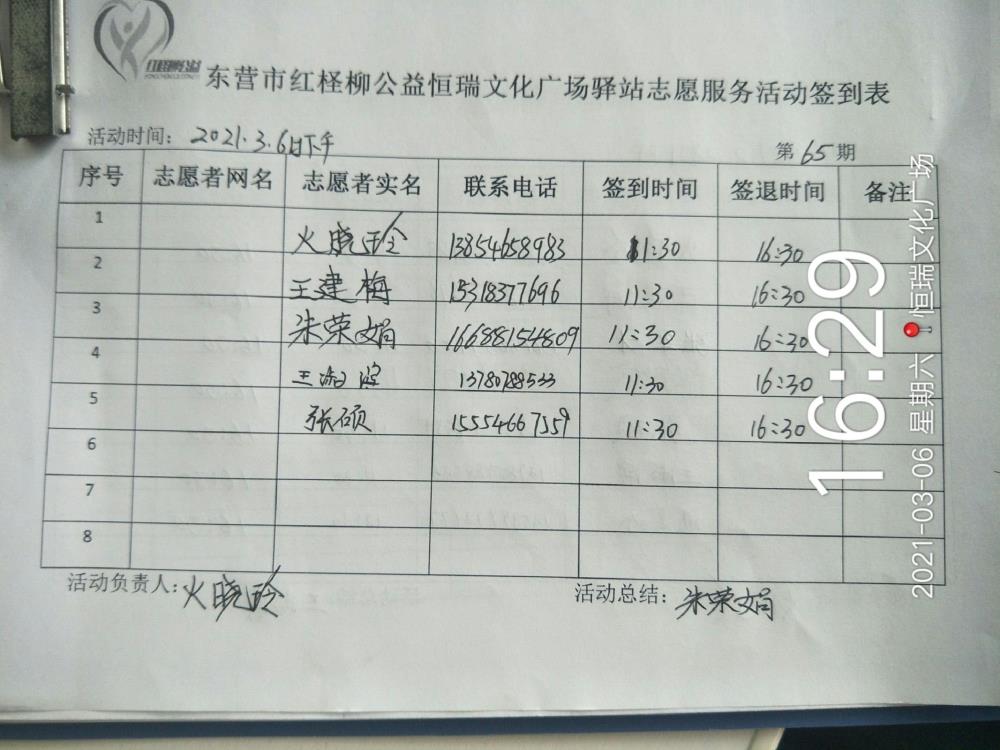 东营市红柽柳公益恒瑞文化广场驿站志愿服务活动签到表
活动时间: 2021.3.6日下午
第 65 期
序号 志愿者网名 志愿者实名 联系电话 签到时间 签退时间 备注
1 火晓玲 13854658983 11:30 16:30
2 王建梅 15318377696 11:30 16:30
3 朱荣娟 16688154809 11:30 16:30
4 王 13780788533 11:30 16:30
5 张硕 15554667559 11:30 16:30
6
7
8
活动负责人: 火晓玲 活动总结: 朱荣娟
16:29
2021-03-06 星期六 恒瑞文化广场